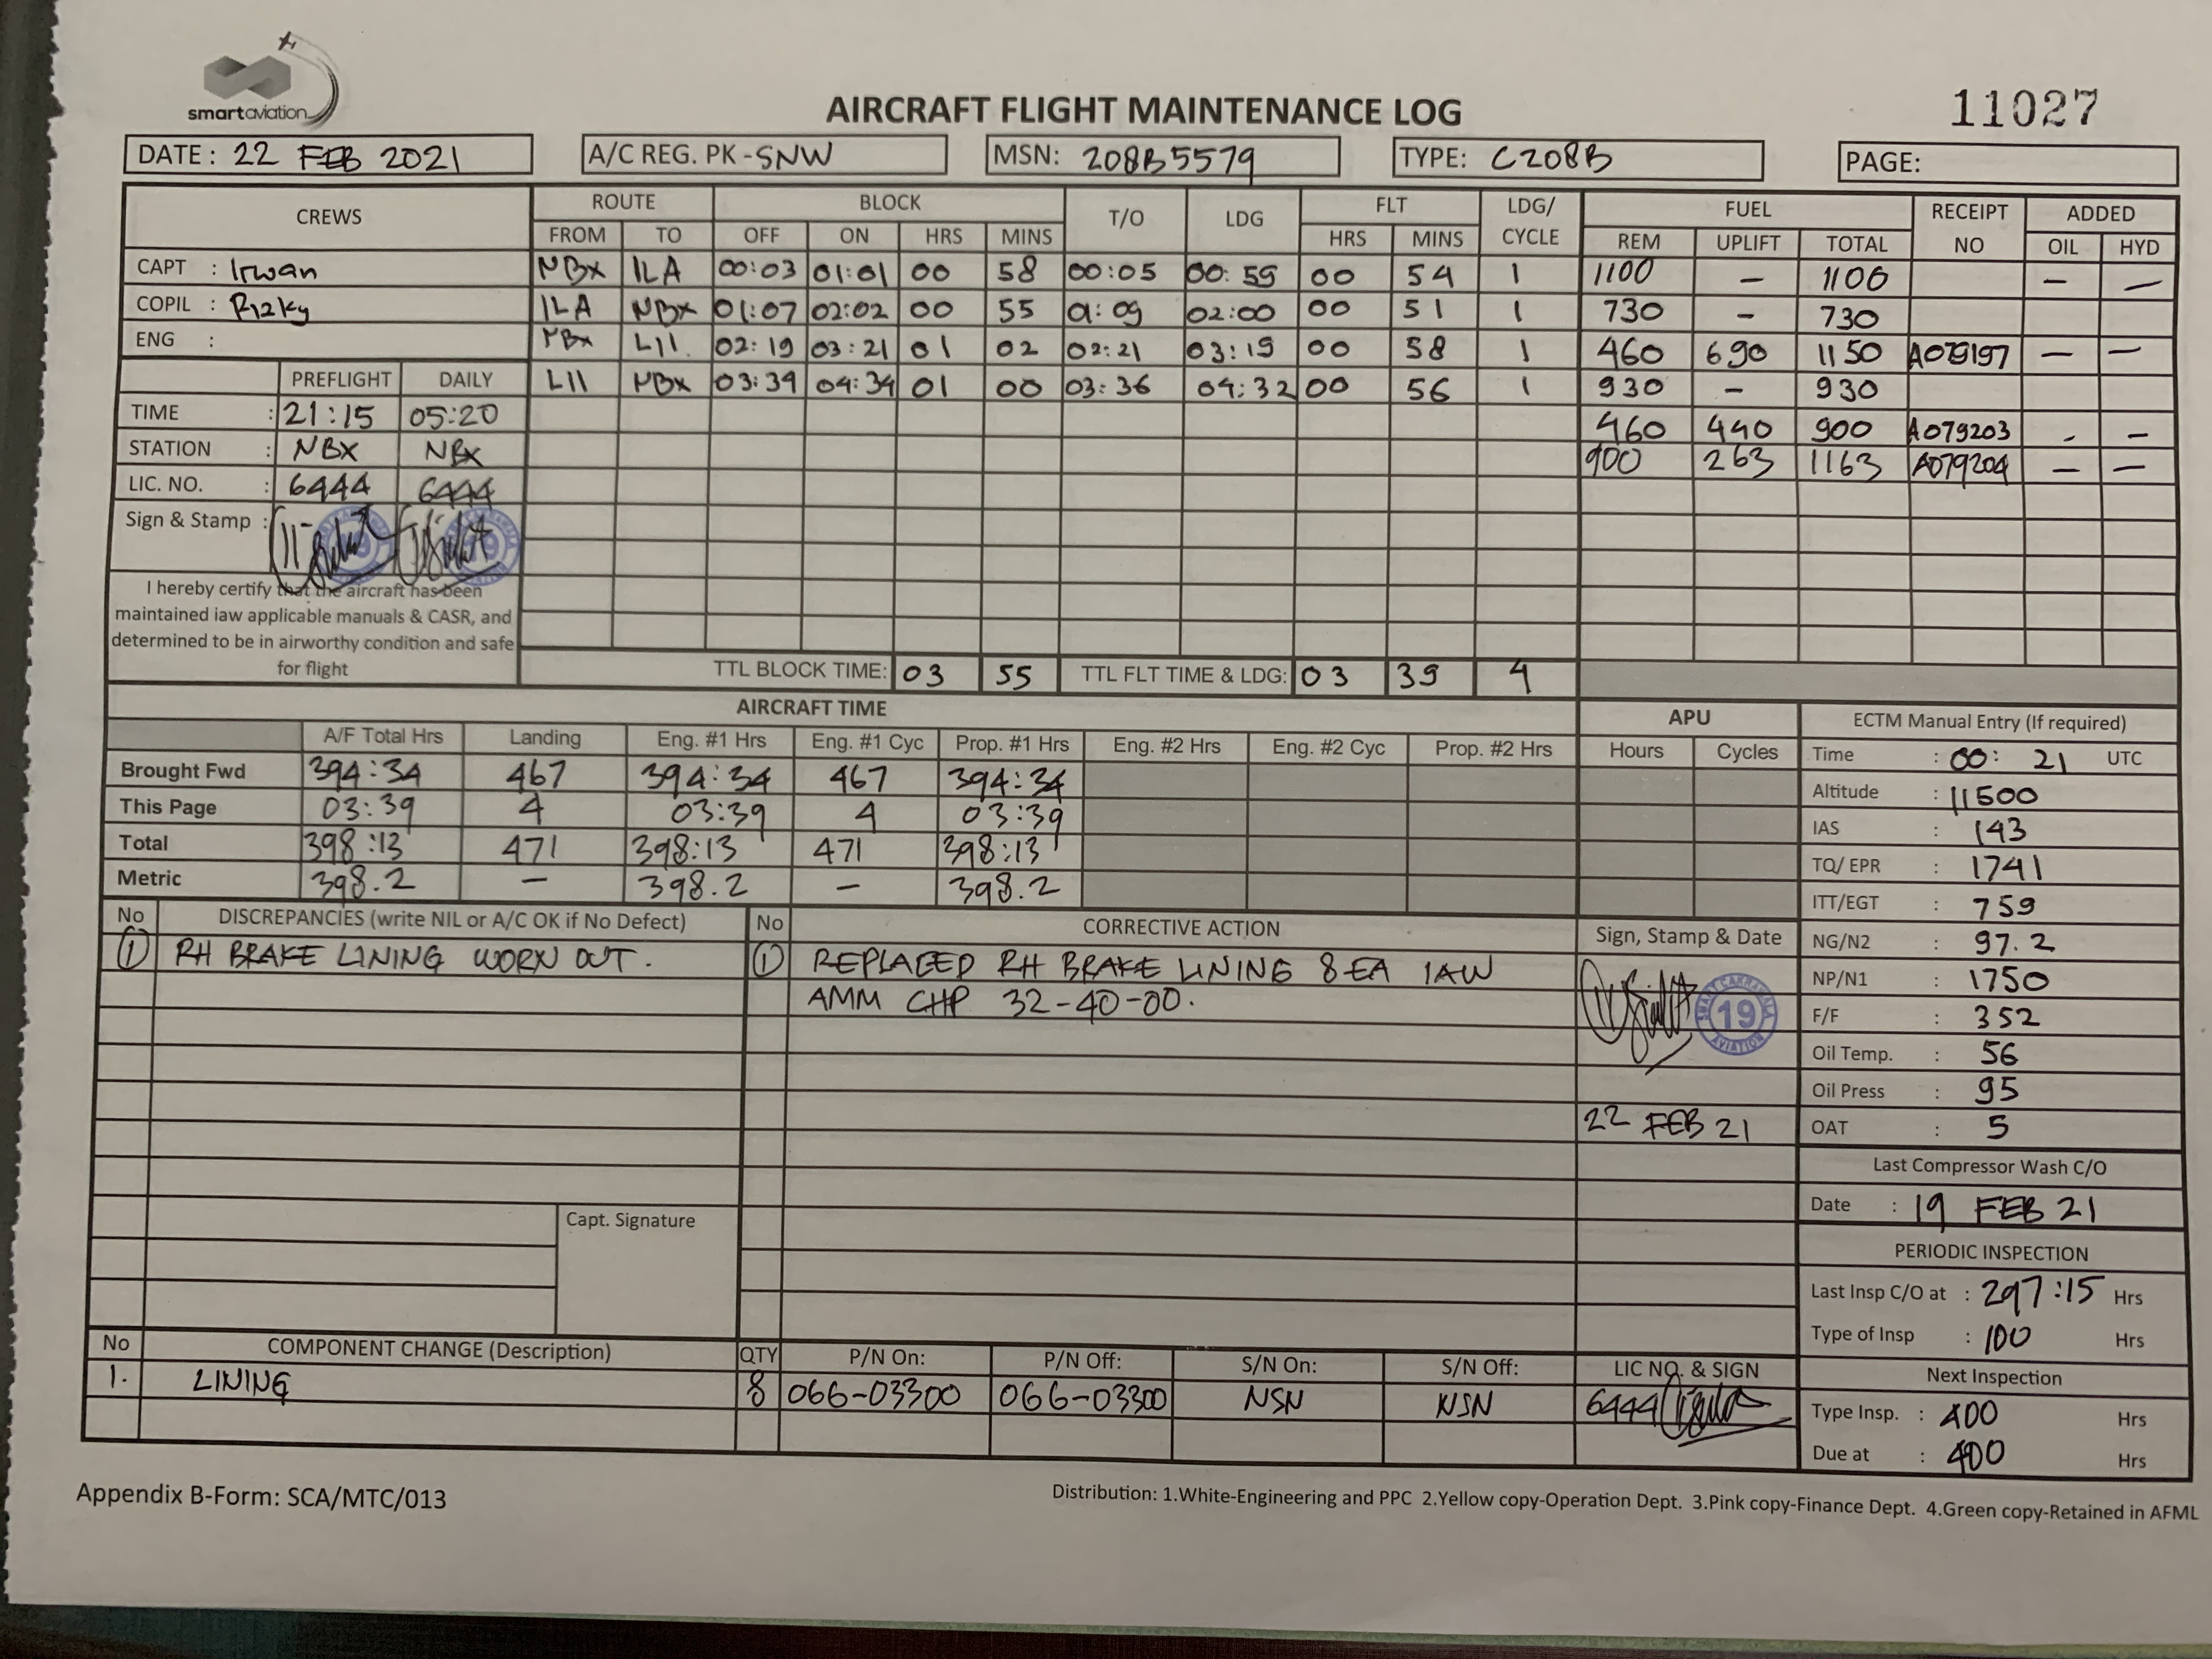 smartaviation
AIRCRAFT FLIGHT MAINTENANCE LOG
11027
DATE : 22 FEB 2021
A/C REG. PK - SNW
MSN: 208B5579
TYPE: C208B
PAGE:
CREWS ROUTE BLOCK T/O LDG FLT LDG/ CYCLE FUEL RECEIPT NO ADDED
FROM TO OFF ON HRS MINS HRS MINS REM UPLIFT TOTAL OIL HYD
CAPT : Irwan NBX ILA 00:03 01:01 00 58 00:05 00:59 00 54 1 1100 - 1100 — —
COPIL : Rizky ILA NBX 01:07 02:02 00 55 01:09 02:00 00 51 1 730 - 730
ENG : NBX LII 02:19 03:21 01 02 02:21 03:19 00 58 1 460 690 1150 A079197 — —
LII NBX 03:34 04:34 01 00 03:36 04:32 00 56 1 930 - 930
460 440 900 A079203 - —
900 263 1163 A079204 — —
PREFLIGHT DAILY
TIME : 21:15 05:20
STATION : NBX NBX
LIC. NO. : 6444 6444
Sign & Stamp :
I hereby certify that the aircraft has been
maintained iaw applicable manuals & CASR, and
determined to be in airworthy condition and safe
for flight
TTL BLOCK TIME: 03 55 TTL FLT TIME & LDG: 03 39 4
AIRCRAFT TIME
APU
A/F Total Hrs Landing Eng. #1 Hrs Eng. #1 Cyc Prop. #1 Hrs Eng. #2 Hrs Eng. #2 Cyc Prop. #2 Hrs Hours Cycles
Brought Fwd 394:34 467 394:34 467 394:34
This Page 03:39 4 03:39 4 03:39
Total 398:13 471 398:13 471 398:13
Metric 398.2 — 398.2 — 398.2
ECTM Manual Entry (If required)
Time : 00: 21 UTC
Altitude : 11500
IAS : 143
TQ/ EPR : 1741
ITT/EGT : 759
NG/N2 : 97.2
NP/N1 : 1750
F/F : 352
Oil Temp. : 56
Oil Press : 95
OAT : 5
Last Compressor Wash C/O
Date : 19 FEB 21
PERIODIC INSPECTION
Last Insp C/O at : 297:15 Hrs
Type of Insp : 100 Hrs
Next Inspection
Type Insp. : 400 Hrs
Due at : 400 Hrs
No DISCREPANCIES (write NIL or A/C OK if No Defect) No CORRECTIVE ACTION Sign, Stamp & Date
① RH BRAKE LINING WORN OUT. ① REPLACED RH BRAKE LINING 8 EA IAW
AMM CHP 32-40-00.
SMART CAKRAWALA
19
AVIATION
22 FEB 21
Capt. Signature
No COMPONENT CHANGE (Description) QTY P/N On: P/N Off: S/N On: S/N Off: LIC NO. & SIGN
1. LINING 8 066-03300 066-03300 NSN NSN 6444
Appendix B-Form: SCA/MTC/013
Distribution: 1.White-Engineering and PPC 2.Yellow copy-Operation Dept. 3.Pink copy-Finance Dept. 4.Green copy-Retained in AFML